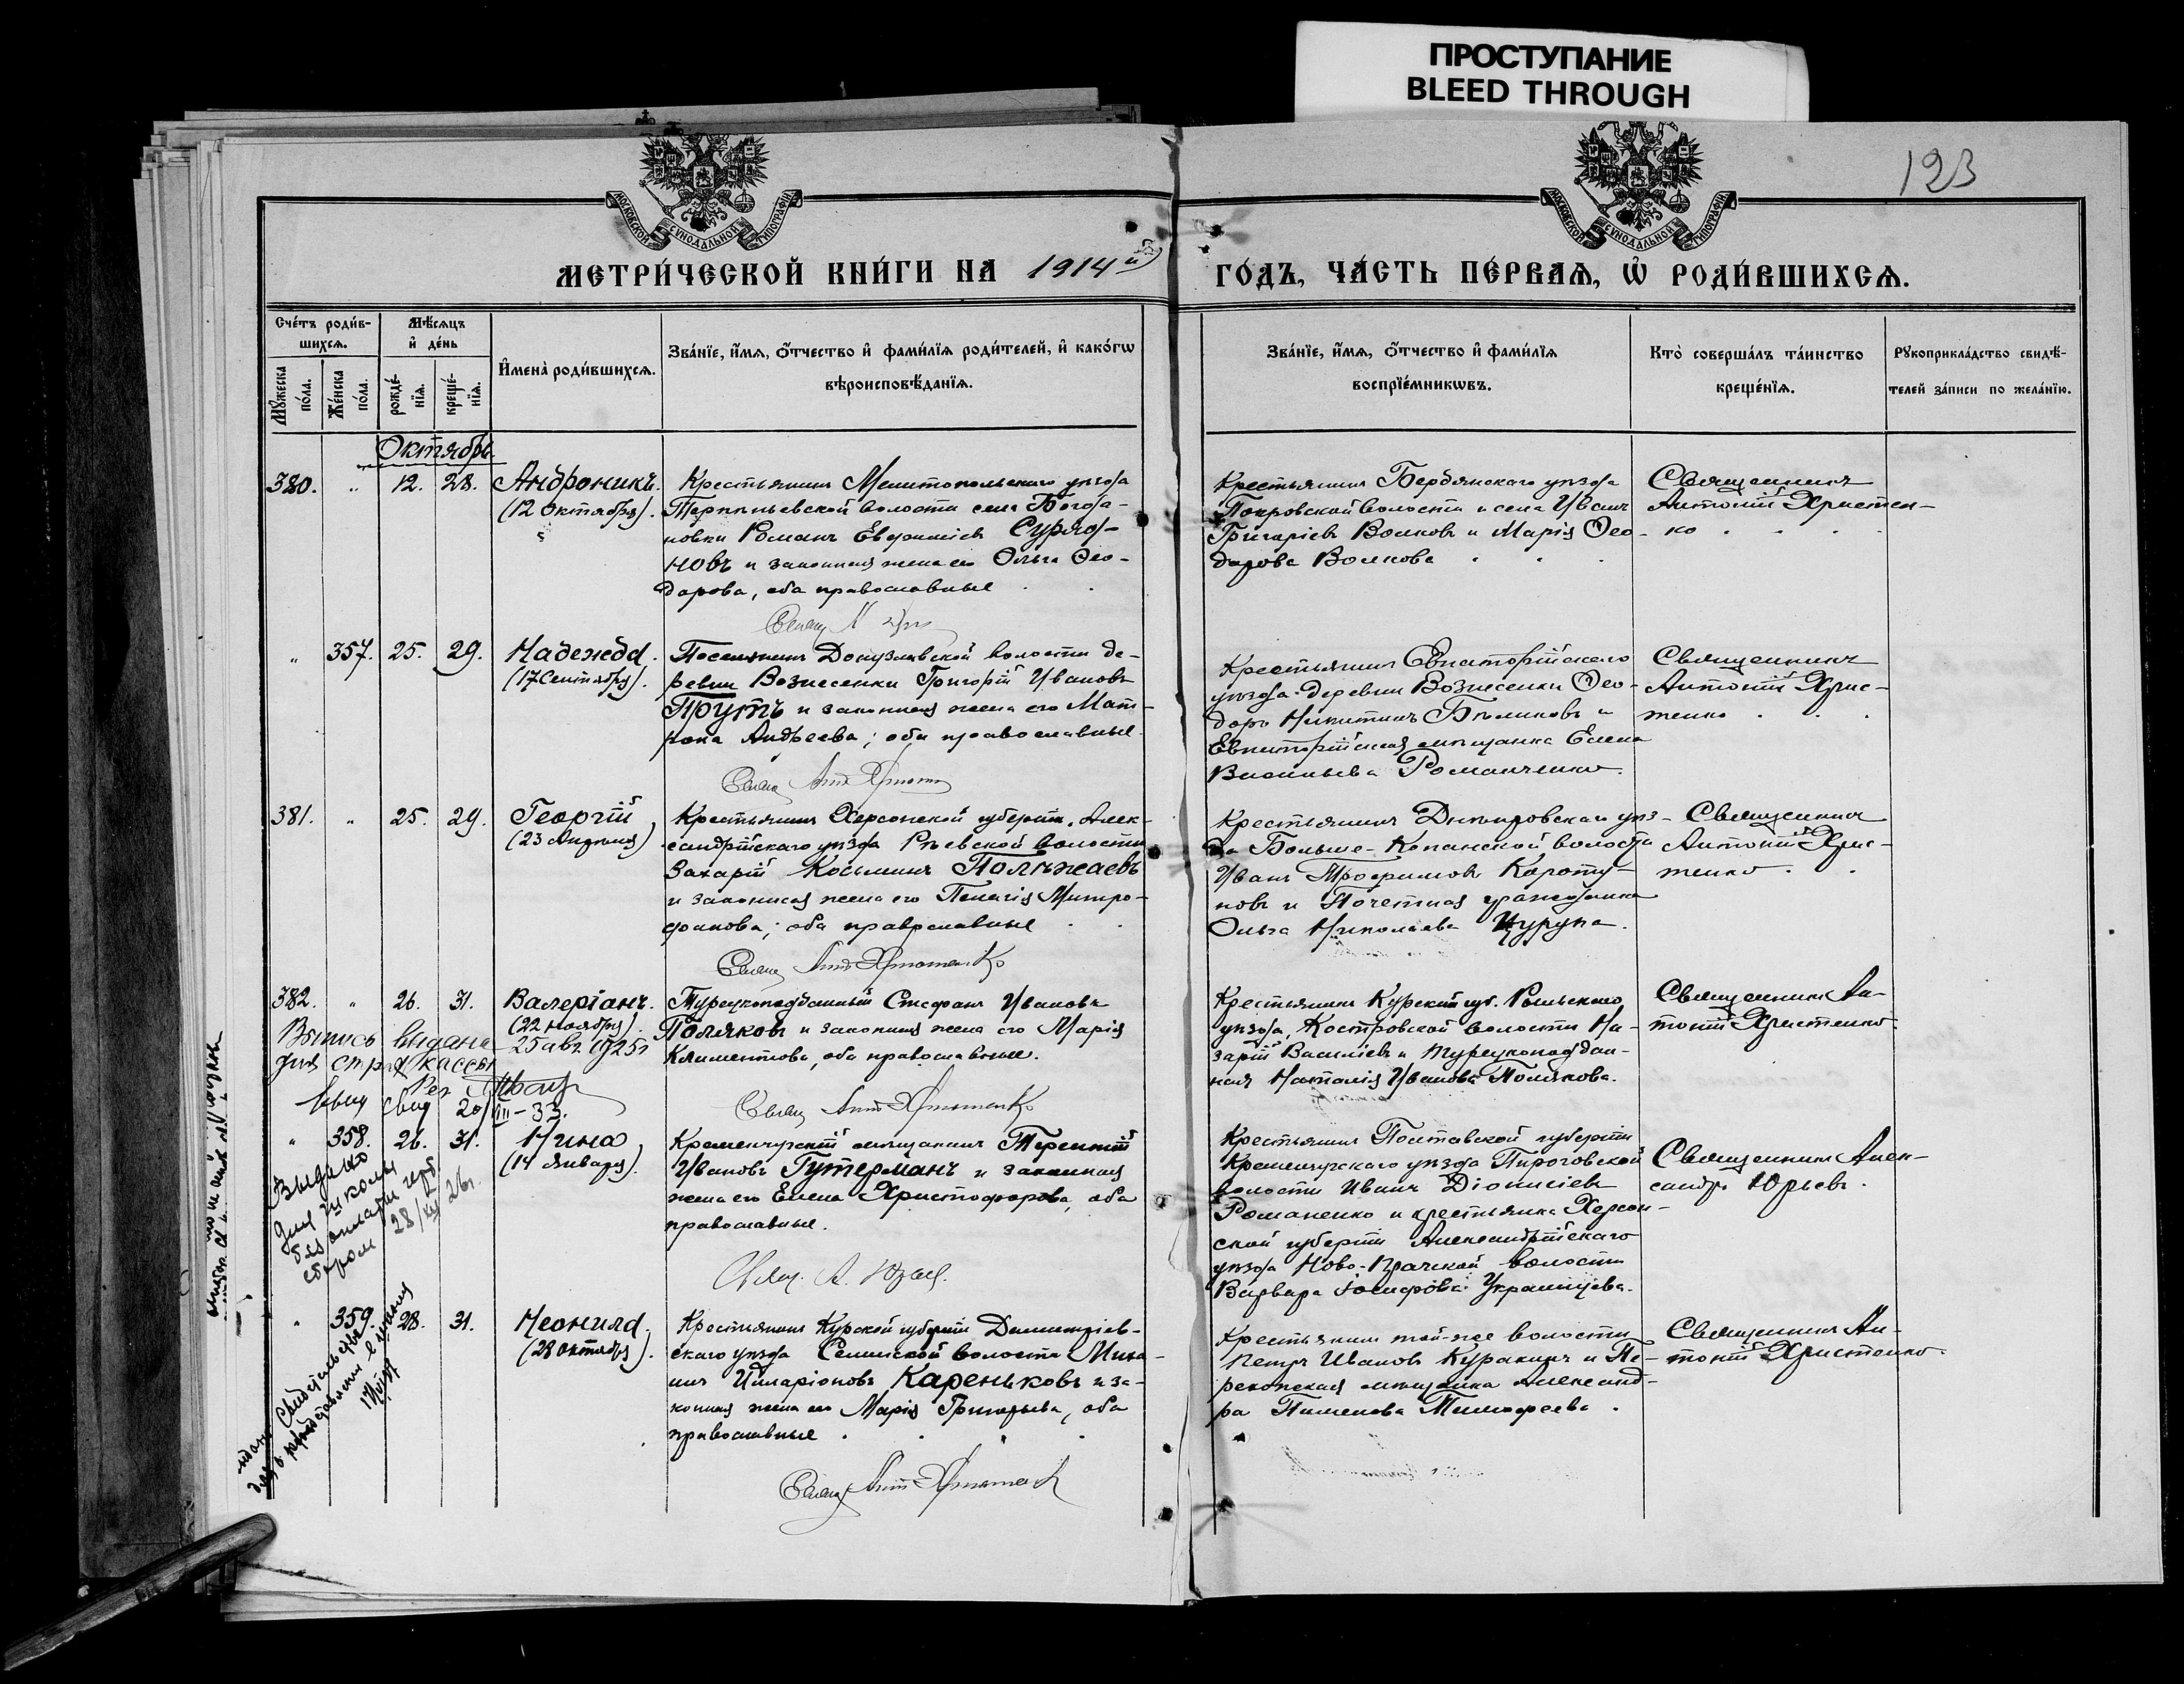 ПРОСТУПАНИЕ
BLEED THROUGH
123
МОСКОВСКОЙ СѴНОДАЛЬНОЙ ТИПОГРАФІИ
МОСКОВСКОЙ СѴНОДАЛЬНОЙ ТИПОГРАФІИ
МЕТРИ́ЧЕСКОЙ КНИ́ГИ НА 1914й
ГО́ДЪ, ЧА́СТЬ ПЕ́РВАѦ, Ѡ҆ РОДИ́ВШИХСѦ.
Сче́тъ роди́в-
шихсѧ.
Мѣ́сѧцъ
и҆ де́нь
Мꙋ́жеска
по́ла.
Же́нска
по́ла.
рожде́-
нїѧ.
креще́-
нїѧ.
И҆мена̀ роди́вшихсѧ.
Зва́нїе, и҆́мѧ, о҆́тчество и҆ фами́лїѧ роди́телей, и҆ како́гѡ
вѣроисповѣ́данїѧ.
Зва́нїе, и҆́мѧ, о҆́тчество и҆ фами́лїѧ
воспрїе́мникѡвъ.
Кто̀ соверша́лъ та́инство
креще́нїѧ.
Рꙋкоприкла́дство свидѣ́-
телей за́писи по жела́нїю.
Октябрь
380. " 12. 28. Андроникъ.
(12 Октября).
Крестьянинъ Мелитопольскаго уѣзда
Терпѣньевской волости села Богда-
новки Романъ Евфиміевъ Сурго-
новъ и законная жена его Ольга Ѳео-
дорова, оба православные
Крестьянинъ Бердянскаго уѣзда
Покровской волости и села Иванъ
Григоріевъ Волковъ и Марія Ѳео-
дорова Волкова
Священникъ
Антоній Христен-
ко
" 357. 25. 29. Надежда.
(17 Сентября).
Поселянинъ Донузлавской волости де-
ревни Вознесенки Григорій Ивановъ
Прутъ и законная жена его Мат-
рона Андреева; оба православные
Свящ. Ант. Христенко
Крестьянинъ Евпаторійскаго
уѣзда деревни Вознесенки Ѳео-
доръ Никитинъ Бѣликовъ и
Евпаторійская мѣщанка Елена
Васильева Романченко.
Священникъ
Антоній Хрис-
тенко
381. " 25. 29. Георгій
(23 Апрѣля)
Крестьянинъ Херсонской губерніи, Алек-
сандрійскаго уѣзда волости
Захарій Косьминъ Полѣжаевъ
и законная жена его Пелагія Митро-
фанова; оба православные
Свящ. Ант. Христенко
Крестьянинъ Днѣпровскаго уѣз-
да Больше-Копанской волости
Иванъ Трофимовъ Корсту-
новъ и Почетная гражданка
Ольга Николаева Цурупа.
Священникъ
Антоній Хрис-
тенко
382. " 26. 31. Валеріанъ.
(22 Ноября).
Турецкоподданный Стефанъ Ивановъ
Поляковъ и законная жена его Марія
Климентова, оба православные.
Свящ. Ант. Христенко
Выпись выдана 25 авг. 1925 г.
для страх кассы
свид 20/VIII-33.
Крестьянинъ Курской губ. Рыльскаго
уѣзда, Костровской волости На-
зарій Василіевъ и турецкоподдан-
ная Наталія Иванова Полякова.
Священникъ Ан-
тоній Христенко.
" 358. 26. 31. Нина
(14 Января).
Кременчугскій мѣщанинъ Терентій
Ивановъ Гутерманъ и законная
жена его Елена Христофорова, оба
православные.
Свящ. А. Юрьев.
Выдано
для школы
без оплаты герб.
сбором 28/ 26 г.
Крестьянинъ Полтавской губерніи
Кременчугскаго уѣзда Пироговской
волости Иванъ Діонисіевъ
Романенко и крестьянка Херсон-
ской губерніи Александрійскаго
уѣзда Ново-Прагской волости
Варвара Іосифова Украинцева.
Священникъ Алек-
сандръ Юрьевъ.
" 359. 28. 31. Неонила.
(28 Октября).
Крестьянинъ Курской губерніи Димитріев-
скаго уѣзда Селинской волости Мина-
илъ Иларіоновъ Кареньковъ и за-
конная жена его Марія Григорьева, оба
православные
Свящ. Ант. Христенко
Крестьянинъ той-же волости
Петръ Ивановъ Куракинъ и Пе-
рекопская мѣщанка Александ-
ра Пименова Тимофеева.
Священникъ Ан-
тоній Христенко.